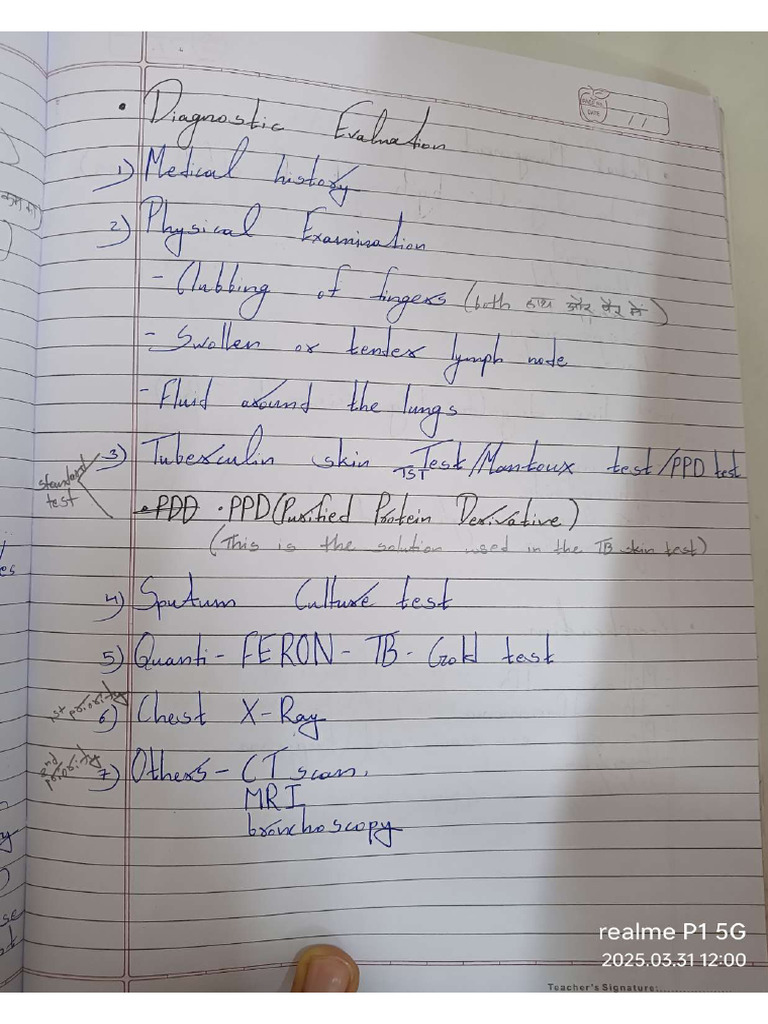 PAGE NO.
DATE
11
• Diagnostic Evaluation
1) Medical history
2) Physical Examination
- Clubbing of fingers (both हाथ और पैर में)
- Swollen or tender lymph node
- Fluid around the lungs
3) Tuberculin skin Test/Mantoux test/PPD test
TST
standard test
•PDD •PPD (Purified Protein Derivative)
(This is the solution used in the TB skin test)
4) Sputum Culture test
5) Quanti-FERON-TB-Gold test
1st priority
6) Chest X-Ray
2nd priority
7) Others- CT scan,
MRI
bronchoscopy
realme P1 5G
2025.03.31 12:00
Teacher's Signature: